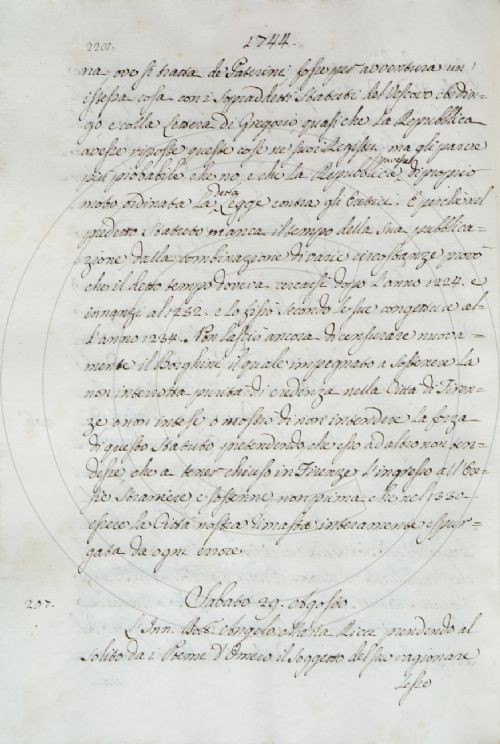 1744.
220v.
na, ove si tratta de Paterini fosse per avventura un'
istessa cosa con i sopraddetti Statuti del Vescovo Ardin-
go e colla Lettera di Gregorio, quasi che la Repubblica
avesse riposte queste cose ne suoi Registri, ma gli parve
più probabile che no, e che la Repubblica avesse di proprio
moto ordinata la detta Legge contra gli Eretici. E perchè nel
predetto Statuto manca il tempo della sua pubblica-
zione dalla combinazione di varie circostanze provò
che il detto tempo doveva cercarsi dopo l'anno 1224. e
innanzi al 1232. e lo fissò secondo le sue congetture al-
l'anno 1234. Non lasciò ancora di censurare nuova-
mente il Borghini il quale impegnato a sostenere la
non interrotta purità di credenza nella Città di Firen-
ze o non intese o mostrò di non intendere la forza
di questo Statuto pretendendo che esso ad altro non ten-
desse, che a tener chiuso in Firenze l'ingresso all'Ere-
sie straniere e sostenne, non prima che nel 1330
essere la Città nostra rimasta interamente espur-
gata da ogni errore.
207.
Sabato 29. Agosto
L'Inn. Dott. Angelo Maria Ricci prendendo al
solito da i Poemi d'Omero il soggetto del suo ragionare,
lesse